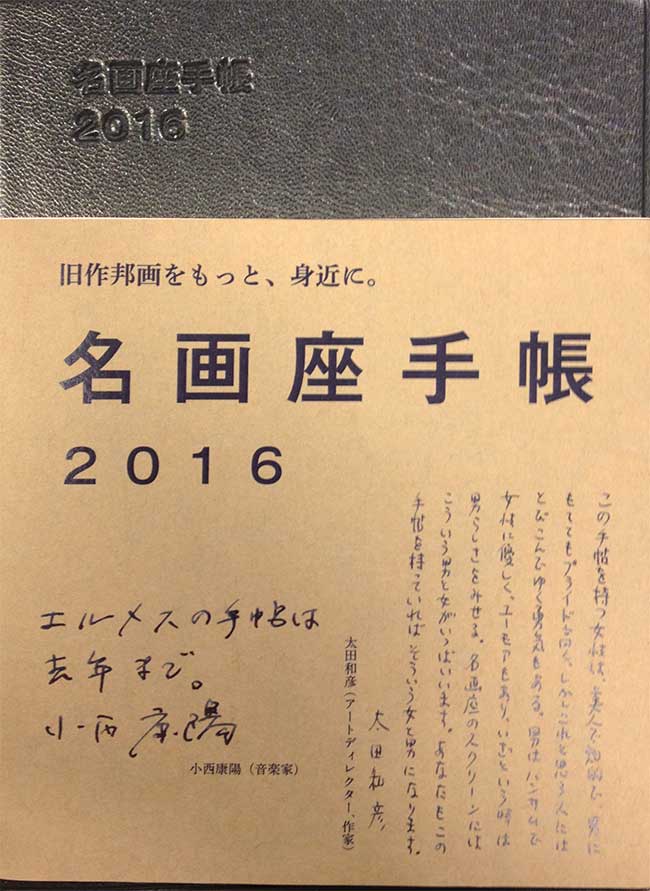 名画座手帳
2016
旧作邦画をもっと、身近に。
名画座手帳
2016
この手帖を持つ女性は、美人で知的で、男に
もててもプライド高く、しかしこれと思う人には
とびこんでゆく勇気もある。男はハンサムで
女性に優しく、ユーモアもあり、いざという時は
男らしさをみせる。名画座のスクリーンには
こういう男と女がいっぱいいます。あなたもこの
手帖を持っていればそういう女と男になります。
太田和彦
太田和彦（アートディレクター、作家）
エルメスの手帖は
去年まで。
小西康陽
小西康陽（音楽家）